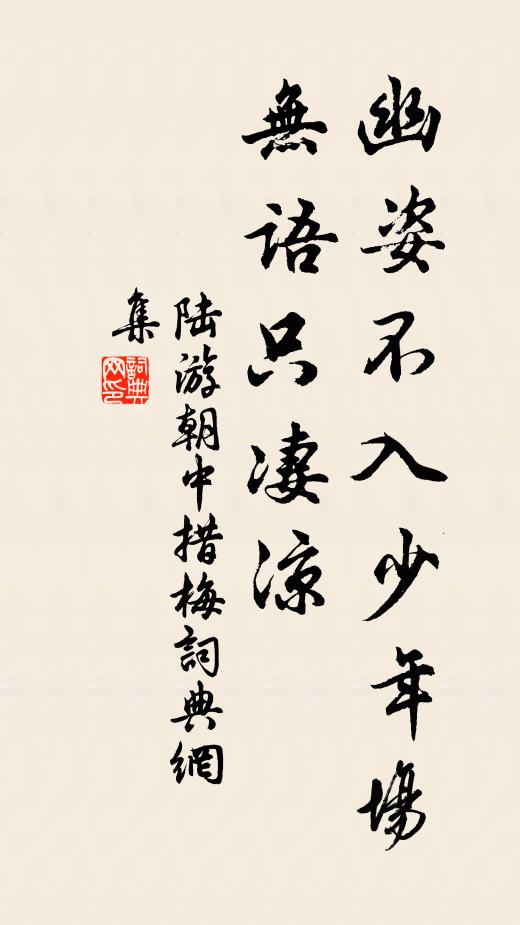 幽姿不入少年場
無語只淒涼
陆游朝中措梅詞典網
集
詞典
网印